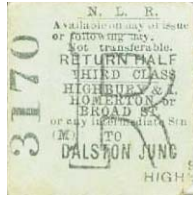 3170
N. L. R.
Available on day of issue
or following day.
Not transferable.
RETURN HALF
THIRD CLASS
HIGHBURY & I.
HOMERTON or
BROAD ST
or any intermediate Stn
(M) TO
DALSTON JUNC
HIGH